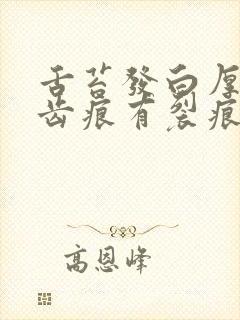 舌苔發白厚
齿痕有裂痕
高恩峰